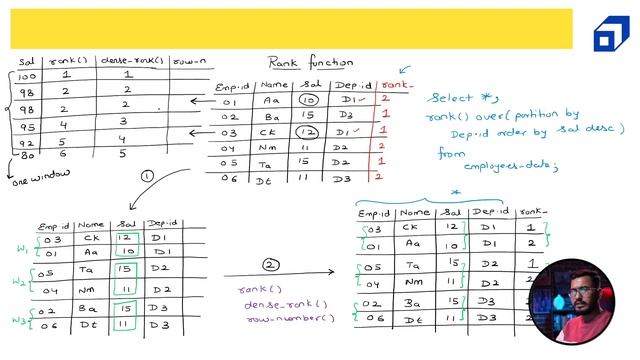 Rank function
Sal rank() dense-rank() row-n
100 1 1
98 2 2
98 2 2
95 4 3
92 5 4
80 6 5
one window
Emp.id Name Sal Dep.id rank_
01 Aa 10 D1 2
02 Ba 15 D3 1
03 Ck 12 D1 1
04 Nm 11 D2 2
05 Ta 15 D2 1
06 Dt 11 D3 2
Select *,
rank() over(partition by
Dep.id order by sal desc)
from
employees-data;
1
Emp.id Name Sal Dep.id
W1 03 Ck 12 D1
01 Aa 10 D1
W2 05 Ta 15 D2
04 Nm 11 D2
W3 02 Ba 15 D3
06 Dt 11 D3
2
rank()
dense-rank()
row-number()
*
Emp.id Name Sal Dep.id rank_
03 Ck 12 D1 1
01 Aa 10 D1 2
05 Ta 15 D2 1
04 Nm 11 D2 2
02 Ba 15 D3
06 Dt 11 D3 2